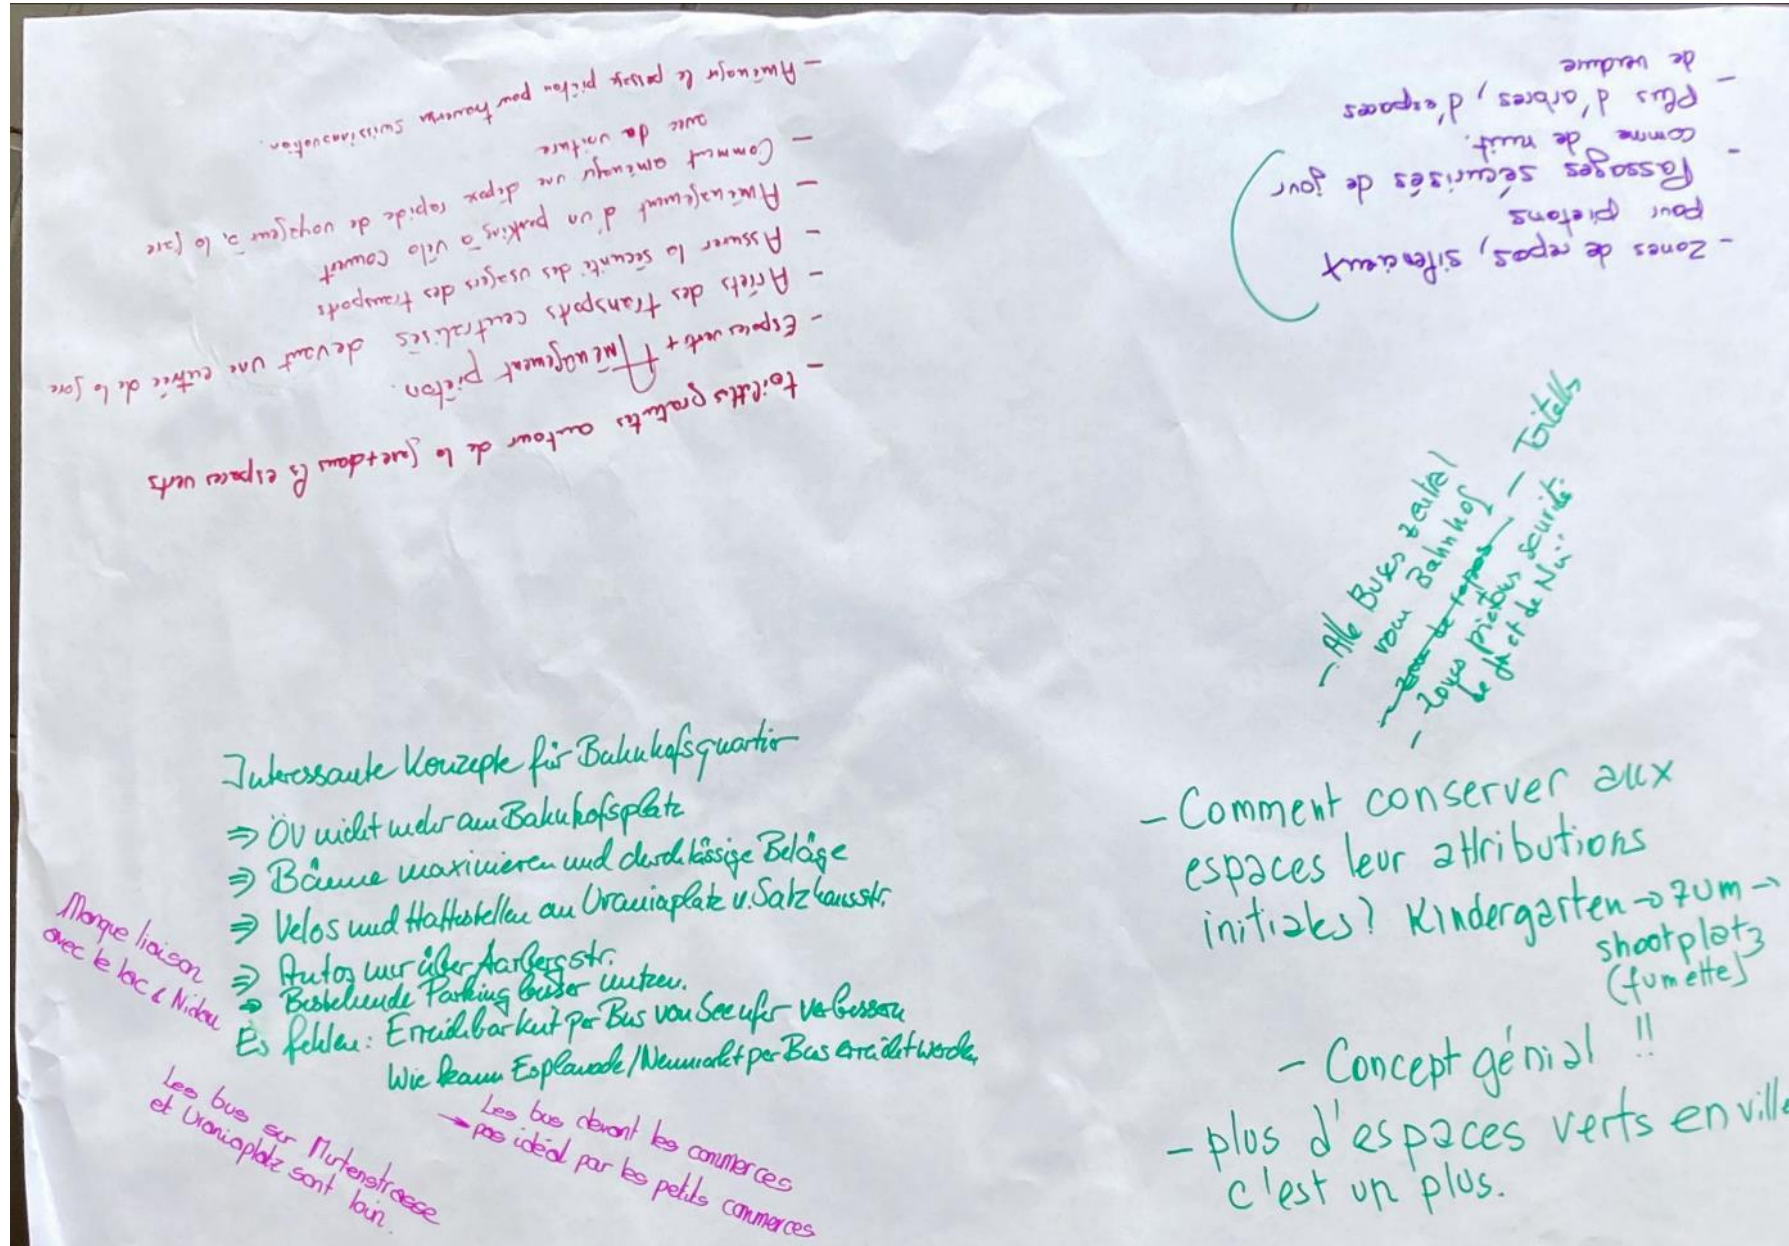 - toilettes gratuites autour de la gare + dans les espaces verts
- Espaces verts + Aménagement piéton.
- Arrêts des transports centralisés devant une entrée de la gare
- Assurer la sécurité des usagers des transports
- Aménagement d'un parking à vélo couvert
- Comment aménager une dépose rapide de voyageur à la gare
avec da voiture
- Aménager le passage piéton pour traverser suissinnovation.
- Zones de repos, silencieux
pour pietons
- Passages sécurisés de jour
comme de nuit.
- Plus d'arbres, d'espaces
de verdure
- Alle Buses zentral
vom Bahnhof
- Zone de repos - Toiletts
- Zones pietons securité
de et de Nui
Interessante Konzepte für Bahnhofsquartier
⇒ ÖV nicht mehr am Bahnhofsplatz
⇒ Bäume maximieren und durchlässige Beläge
⇒ Velos und Haltestellen an Uraniaplatz u. Salzhausstr.
⇒ Autos nur über Aarbergstr.
⇒ Bestehende Parking besser nutzen.
Es fehlen: Erreichbarkeit per Bus von Seeufer verbessern
Wie kann Esplanade/Neumarkt per Bus erreicht werden
Manque liaison
avec le lac & Nidau
Les bus sur Murtenstrasse
et Uraniaplatz sont loin.
Les bus devant les commerces
→ pas idéal par les petits commerces
- Comment conserver aux
espaces leur attributions
initiales? Kindergarten → zum →
shootplatz
(fumette)
- Concept génial !!
- plus d'espaces verts en ville
c'est un plus.